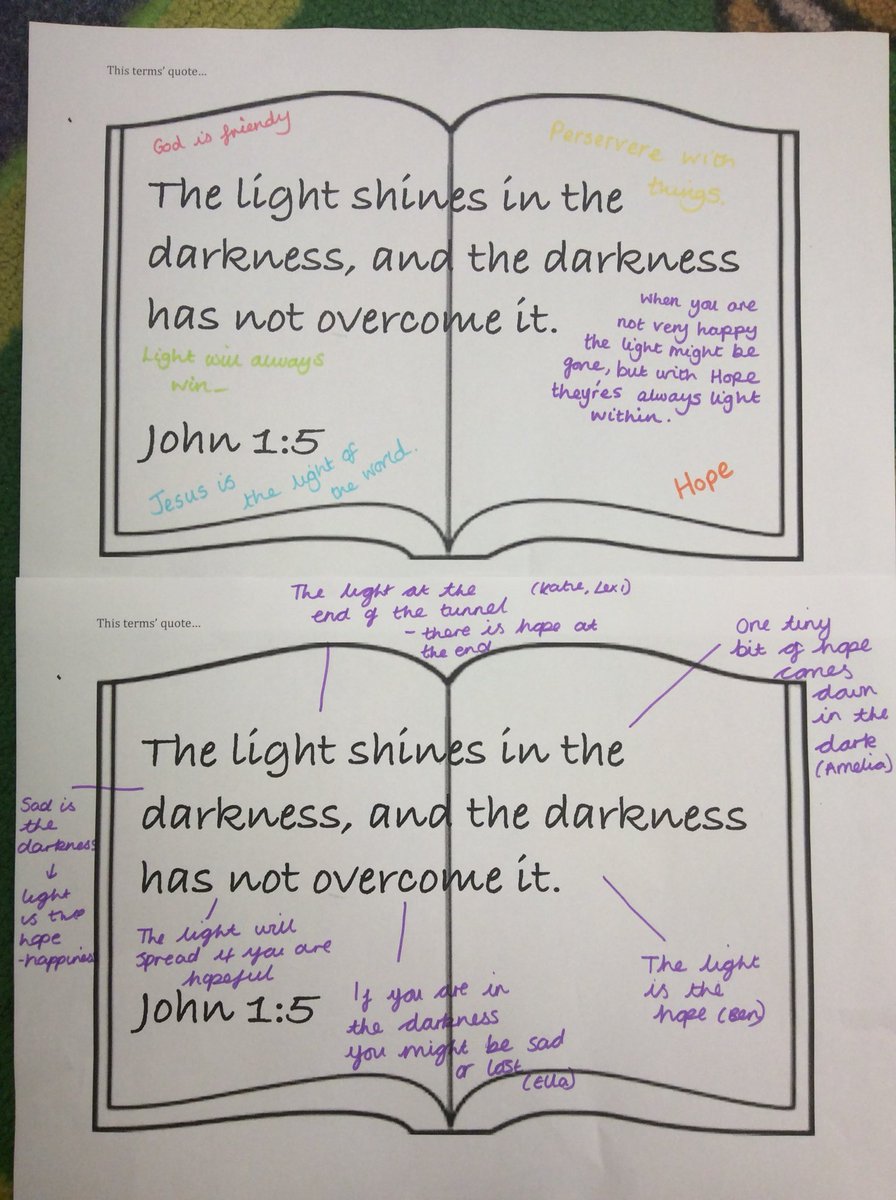 This terms' quote...
God is friendy
Perservere with
things.
The light shines in the
darkness, and the darkness
has not overcome it.
When you are
not very happy
the light might be
gone, but with Hope
they're's always light
within.
Light will always
win
John 1:5
Jesus is the light of
the world.
Hope
The light at the (Katie, Lexi)
end of the tunnel
- there is hope at
the end
This terms' quote...
One tiny
bit of hope
comes
down
in the
dark
(Amelia)
The light shines in the
darkness, and the darkness
has not overcome it.
Sad is
the
darkness
↓
light
is the
hope
-happines
The light will
spread if you are
hopeful
John 1:5
If you are in
the darkness
you might be sad
or lost
(Ella)
The light
is the
hope (Ben)